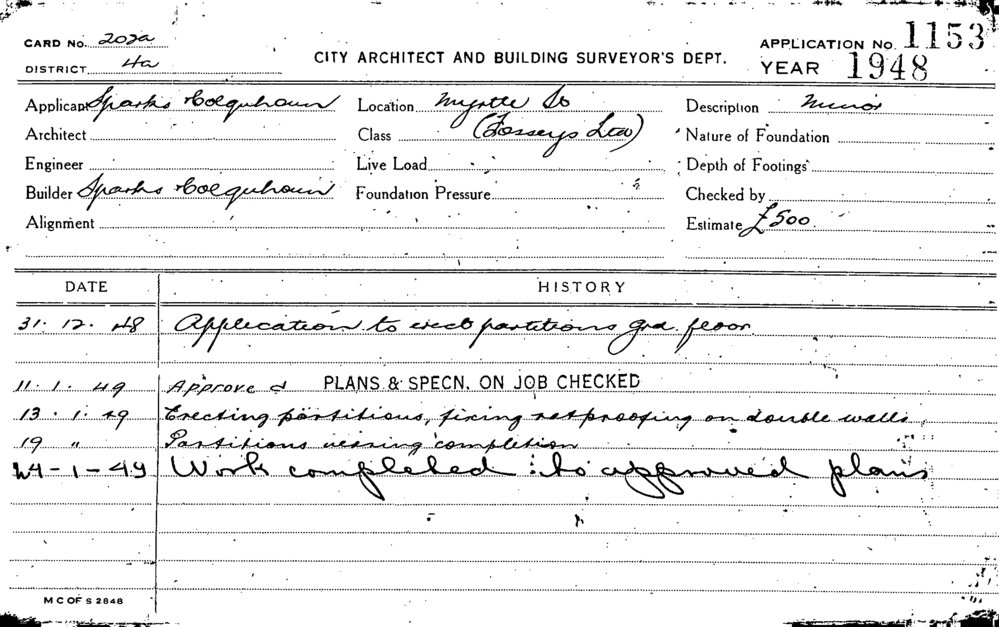 CARD No. 202a
DISTRICT 4a
CITY ARCHITECT AND BUILDING SURVEYOR'S DEPT.
APPLICATION No. 1153
YEAR 1948
Applicant Sparks Colquhoun Location Myrtle St Description Minor
Architect Class (Fosseys Ltd) Nature of Foundation
Engineer Live Load Depth of Footings
Builder Sparks Colquhoun Foundation Pressure Checked by
Alignment Estimate £500
DATE HISTORY
31. 12. 48 Application to erect partitions grd. floor
11. 1. 49 Approved PLANS & SPECN. ON JOB CHECKED
13. 1. 49 Erecting partitions, fixing ratproofing on double walls
19 " Partitions nearing completion
24-1-49 Work completed to approved plans
M C OF S 2848